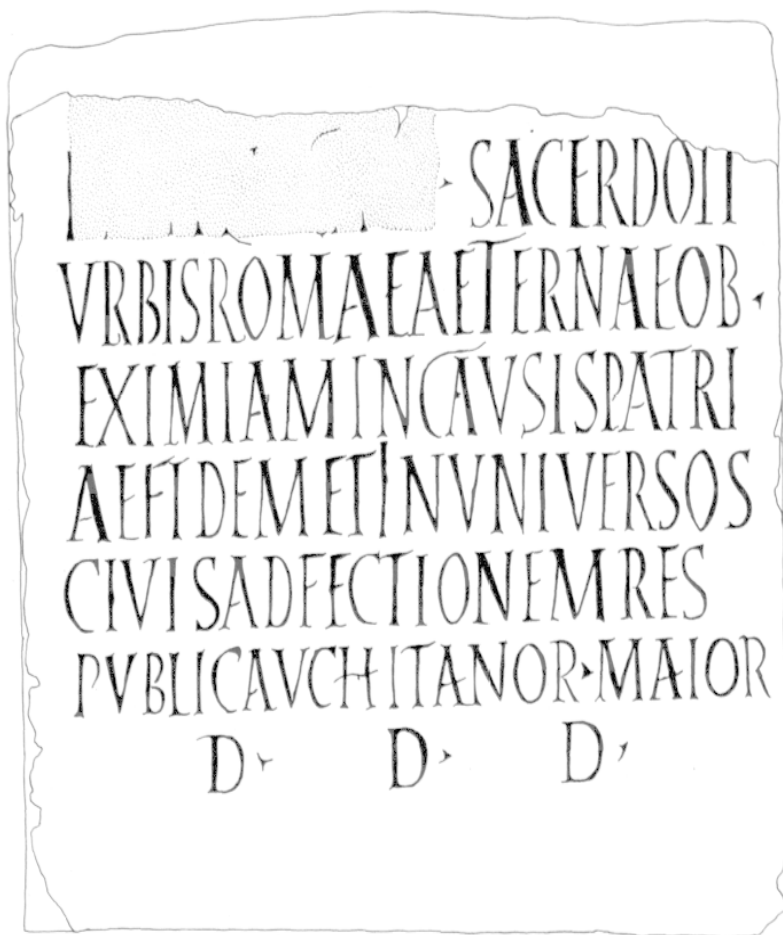 · SACERDOTI
VRBISROMAEAETERNAEOB ·
EXIMIAMINCAVSISPATRI
AEFIDEMETINVNIVERSOS
CIVISADFECTIONEMRES
PVBLICAVCHITANOR·MAIOR
D · D · D ·